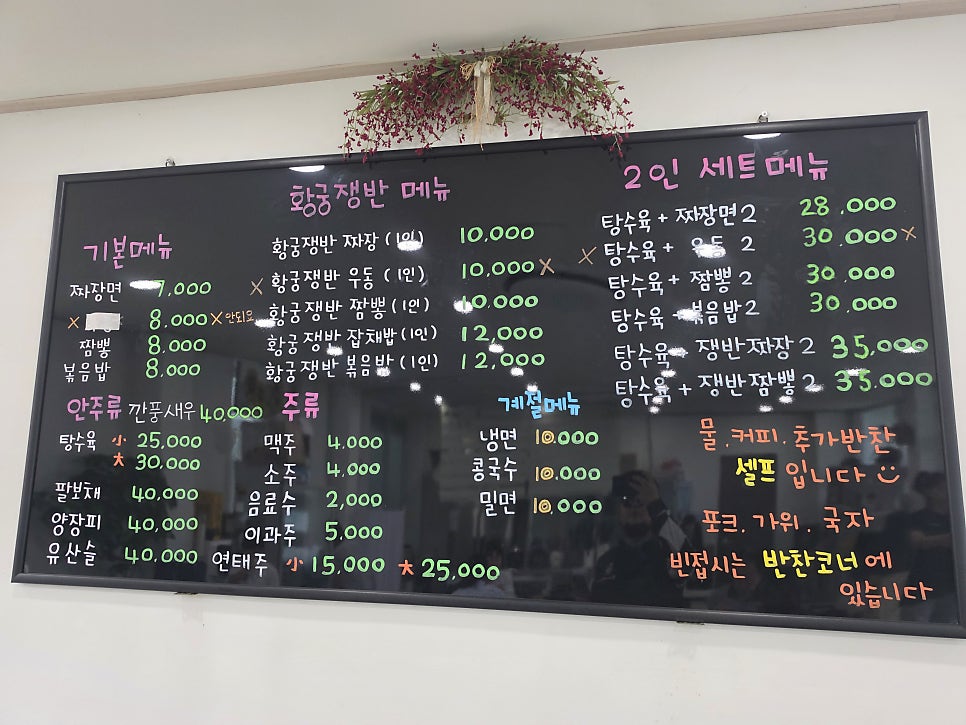 기본메뉴
짜장면 7,000
× 8,000 × 안되요
짬뽕 8,000
볶음밥 8,000
황궁쟁반 메뉴
황궁쟁반 짜장 (1인) 10,000
× 황궁쟁반 우동 (1인) 10,000 ×
황궁쟁반 짬뽕 (1인) 10,000
황궁쟁반 잡채밥 (1인) 12,000
황궁쟁반 볶음밥 (1인) 12,000
2인 세트메뉴
탕수육 + 짜장면 2 28,000
× 탕수육 + 우동 2 30,000 ×
탕수육 + 짬뽕 2 30,000
탕수육 + 볶음밥 2 30,000
탕수육 + 쟁반짜장 2 35,000
탕수육 + 쟁반짬뽕 2 35,000
안주류
깐풍새우 40,000
탕수육 小 25,000
大 30,000
팔보채 40,000
양장피 40,000
유산슬 40,000
주류
맥주 4,000
소주 4,000
음료수 2,000
이과주 5,000
연태주 小 15,000 大 25,000
계절메뉴
냉면 10,000
콩국수 10,000
밀면 10,000
물.커피.추가반찬
셀프입니다
포크.가위.국자
빈접시는 반찬코너에
있습니다